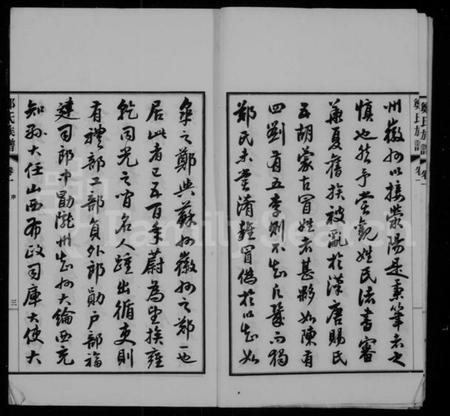 鄭氏族譜 卷一
州徽州以接滎陽是秉筆者之
慎也然予嘗觀姓民法書審
華夏舊族被亂於漢唐賜氏
五胡蒙古冒姓者甚夥如陳有
四劉有五李則不知凡幾而獨
鄭氏未嘗淆雜冒偽於以知如
皋之鄭與蘇州徽州之鄭一也
居此者已五百年蔚為望族雍
乾同光之間名人踵出循吏則
有禮部工部員外郎勛戶部福
建司郎中勛隴州知州大綸西充
知縣大任山西布政司庫大使大
鄭氏族譜 卷一 序 三
FamilySearch